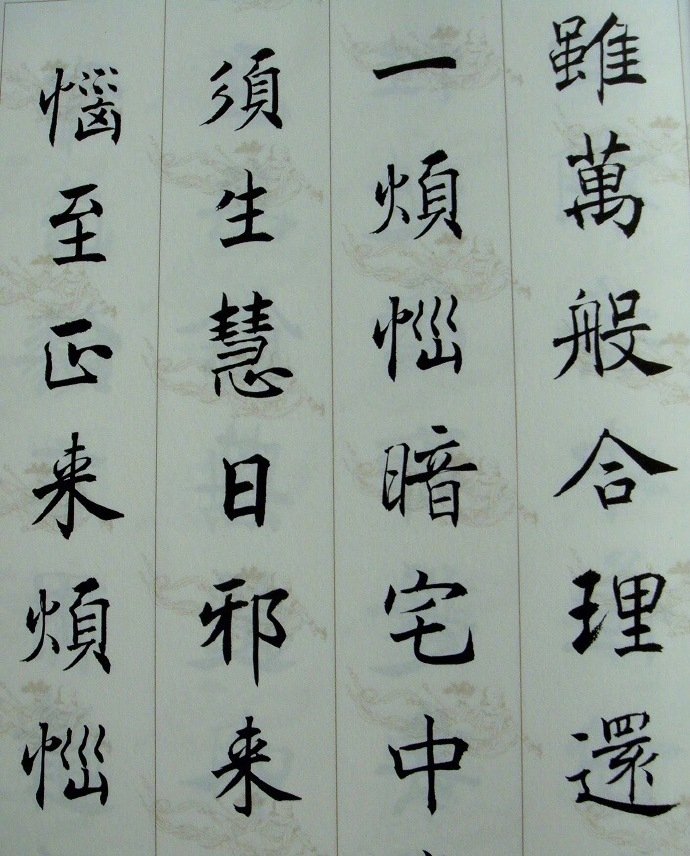 雖萬般合理還
一煩惱暗宅中
須生慧日邪来
惱至正来煩惱